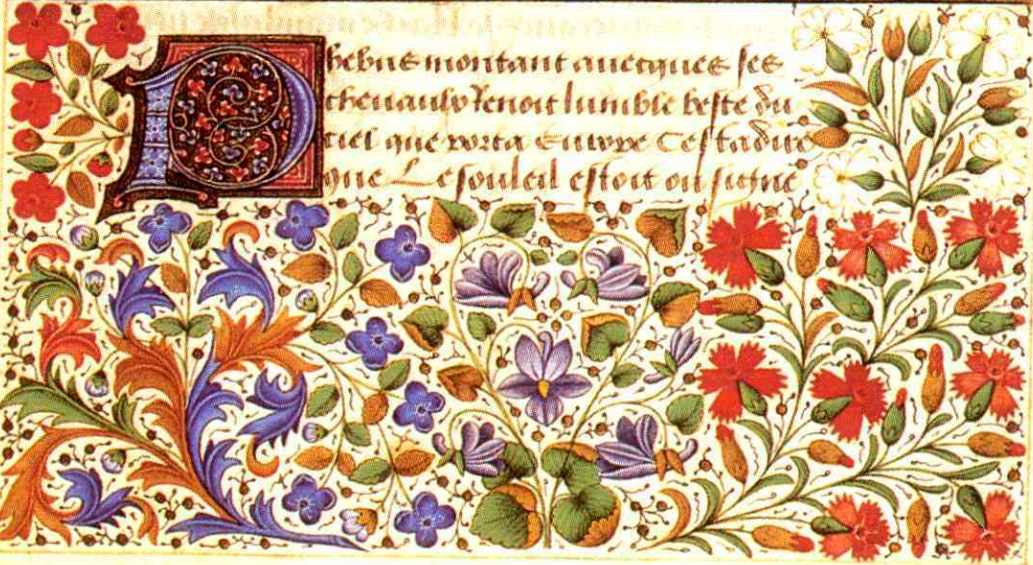 Phebus montant avecques ses
chevaulx tenoit lumble beste du
ciel que porta Europe Cestadire
que Le souleil estoit ou signe